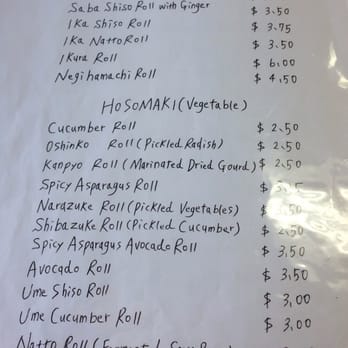 Saba Shiso Roll with Ginger $ 3.50
Ika Shiso Roll $ 3.75
Ika Natto Roll $ 3.50
Ikura Roll $ 6.00
Negihamachi Roll $ 4.50
HOSOMAKI (Vegetable)
Cucumber Roll $ 2.50
Oshinko Roll (Pickled Radish) $ 2.50
Kanpyo Roll (Marinated Dried Gourd) $ 2.50
Spicy Asparagus Roll $
Narazuke Roll (Pickled Vegetables) $
Shibazuke Roll (Pickled Cucumber) $ 2.50
Spicy Asparagus Avocado Roll $ 3.50
Avocado Roll $ 3.50
Ume Shiso Roll $ 3.00
Ume Cucumber Roll $ 3.00
Natto Roll (